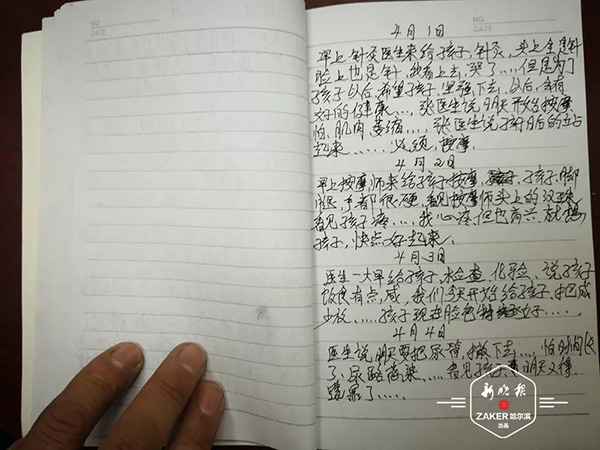 NO.
DATE
NO
DATE
4月1日
早上针灸医生来给孩子,针灸,头上全是针
脸上也是针,我看上去,哭了....但是为了
孩子以后,希望孩子,坚强,下去,以后,会有
好的健康...,张医生说明天开始按摩
怕,肌肉,萎缩,....张医生说孩子以后的站
起来......必须,按摩.
4月2日
早上按摩师来给孩子按摩,孩子脚
腿,手都很硬,看见按摩师头上的汉珠
看见孩子疼....我心疼但也高兴就想,
孩子,快点好起来.
4月3日
医生一大早给孩子,检查化验,说孩子
饮食有点,咸,我们今天开始给孩子,把咸
少放....孩子现在脸色特好.....
4月4日
医生说明天要把尿管,撤下去...怕时间长
了,尿路感染....看见孩子,明天又得
遭罪了....
新晚报
ZAKER哈尔滨
出品